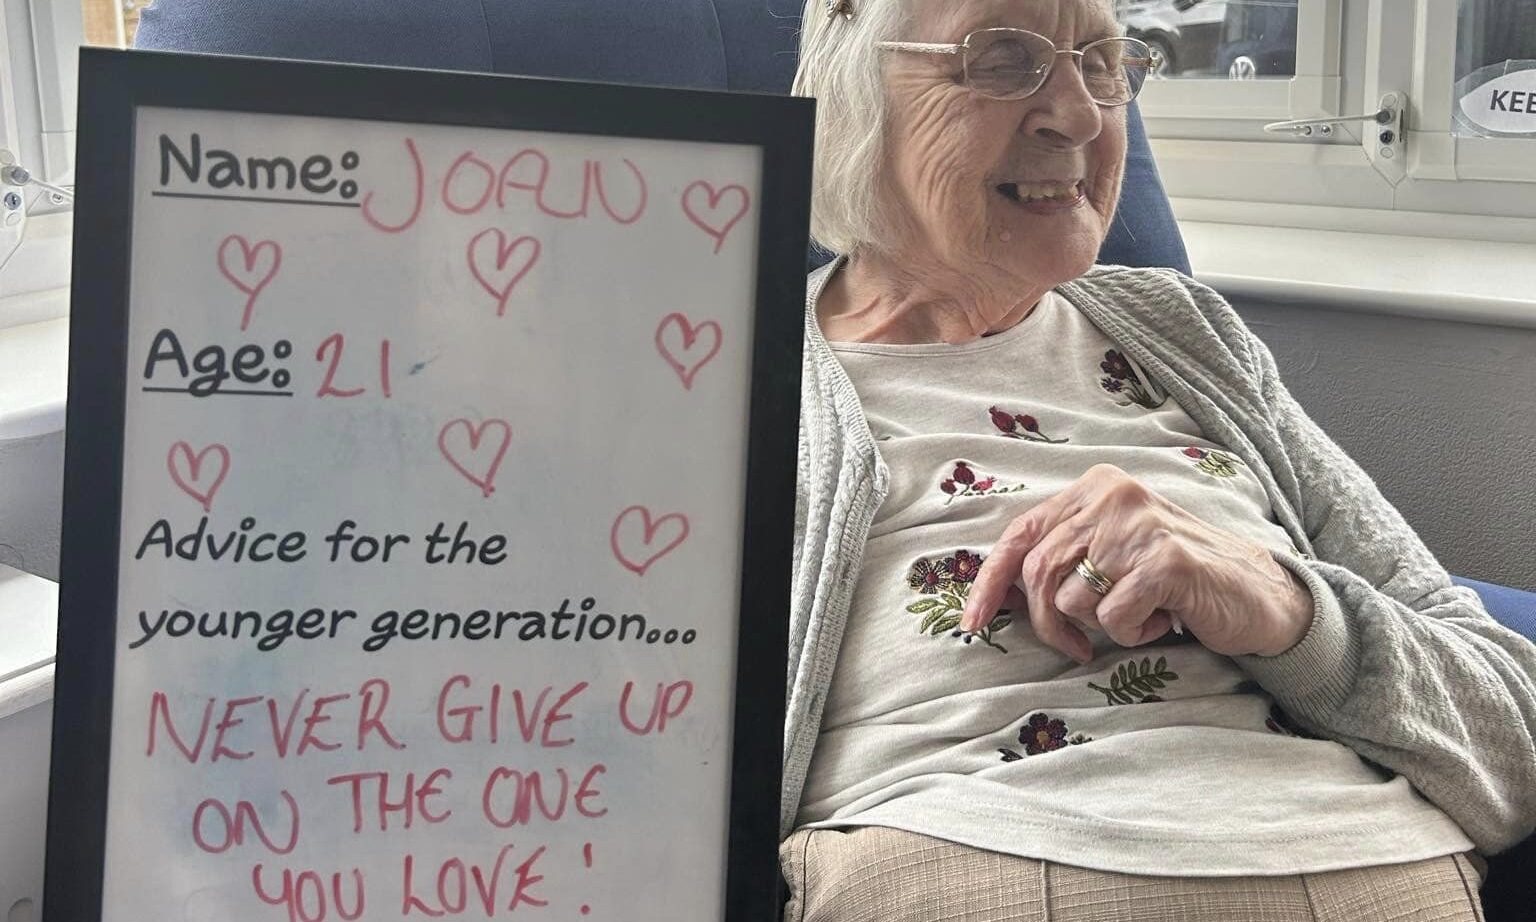 Name: JOAN
Age: 21
Advice for the
younger generation...
NEVER GIVE UP
ON THE ONE
YOU LOVE!